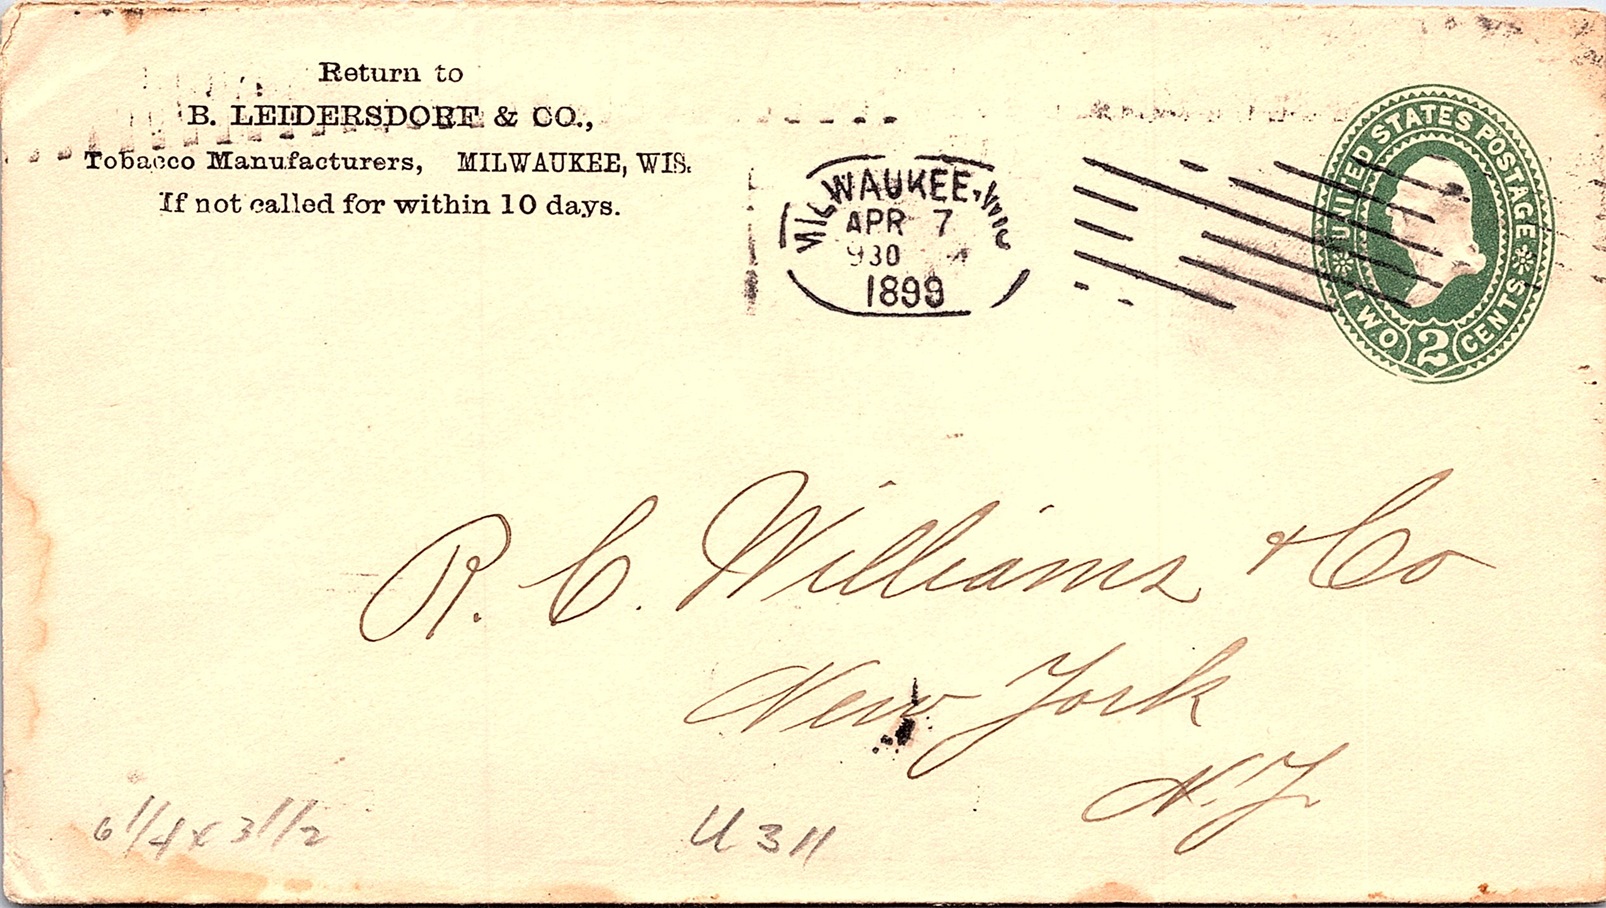 Return to
B. LEIDERSDORF & CO.,
Tobacco Manufacturers, MILWAUKEE, WIS.
If not called for within 10 days.
MILWAUKEE, WIS
APR 7
930 A
1899
UNITED STATES POSTAGE
TWO 2 CENTS
R. C. Williams & Co
New York
N.Y.
6 1/4 x 3 1/2
U311